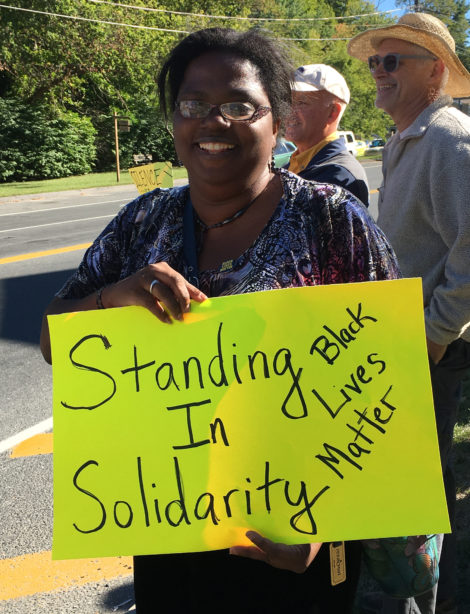 SILENCE
Standing
In
Solidarity
Black
Lives
Matter